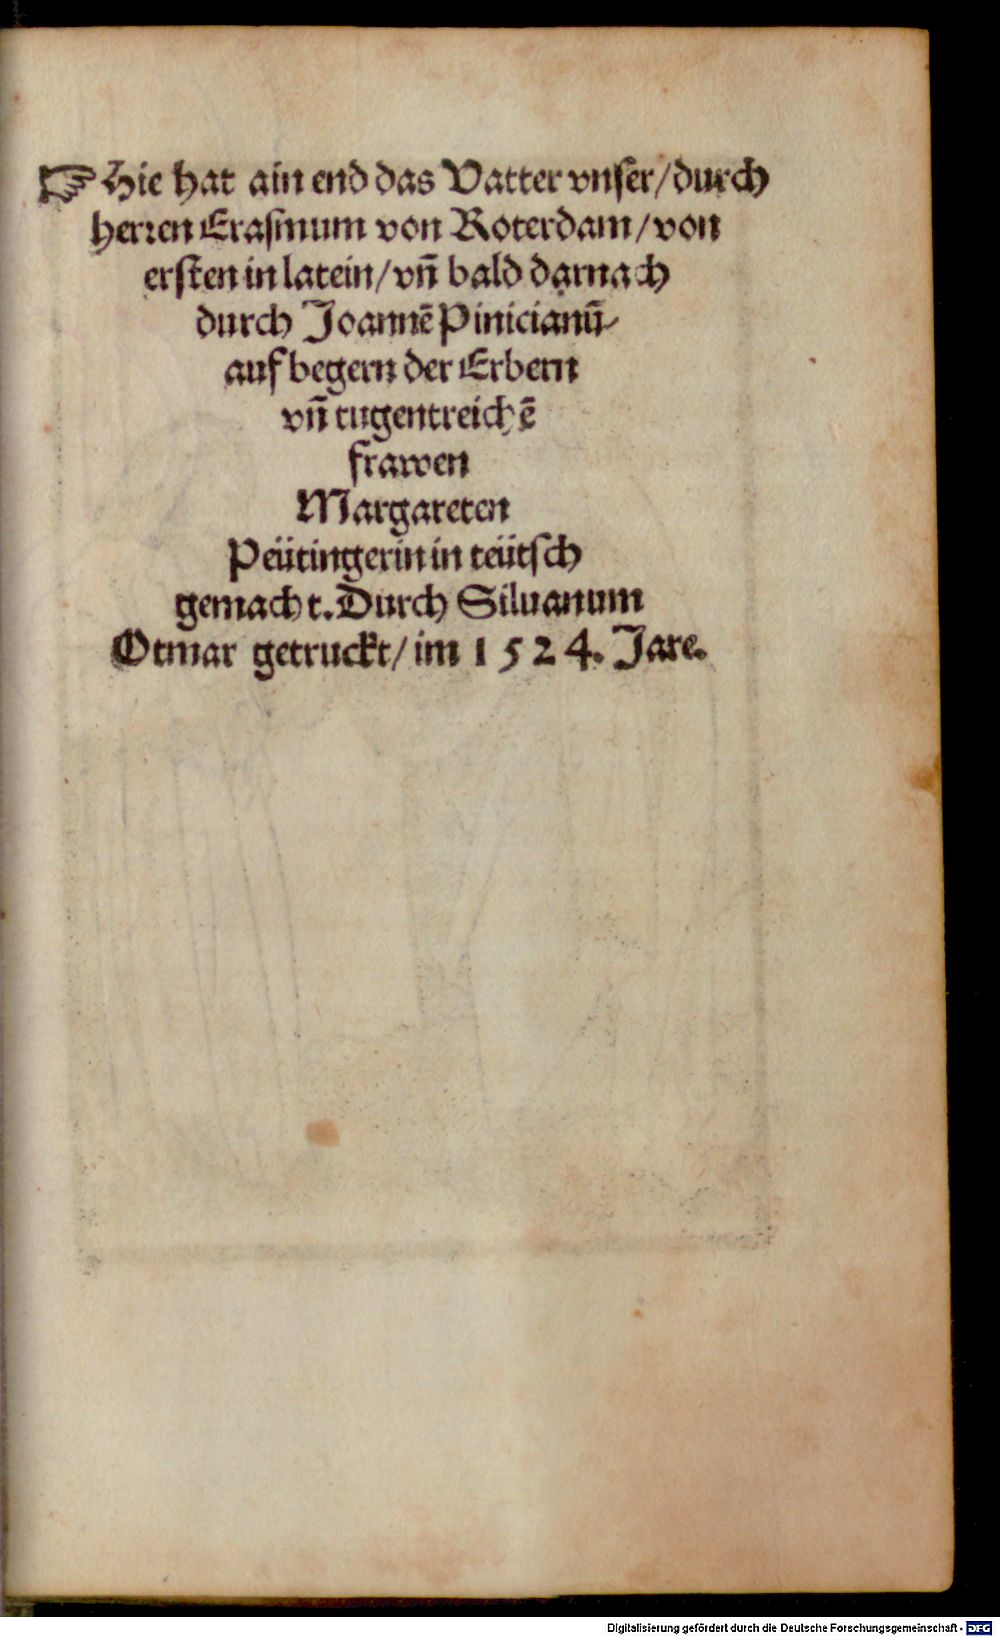 ☞ Hie hat ain end das Vatter vnser/durch
herren Erasmum von Roterdam/von
ersten in latein/vn̄ bald darnach
durch Joannē Pinicianū/
auf begern der Erbern
vn̄ tugentreichē
frawen
Margareten
Peütingerin in teütsch
gemacht. Durch Siluanum
Otmar getruckt/im 1524. Jare.
Digitalisierung gefördert durch die Deutsche Forschungsgemeinschaft - DFG